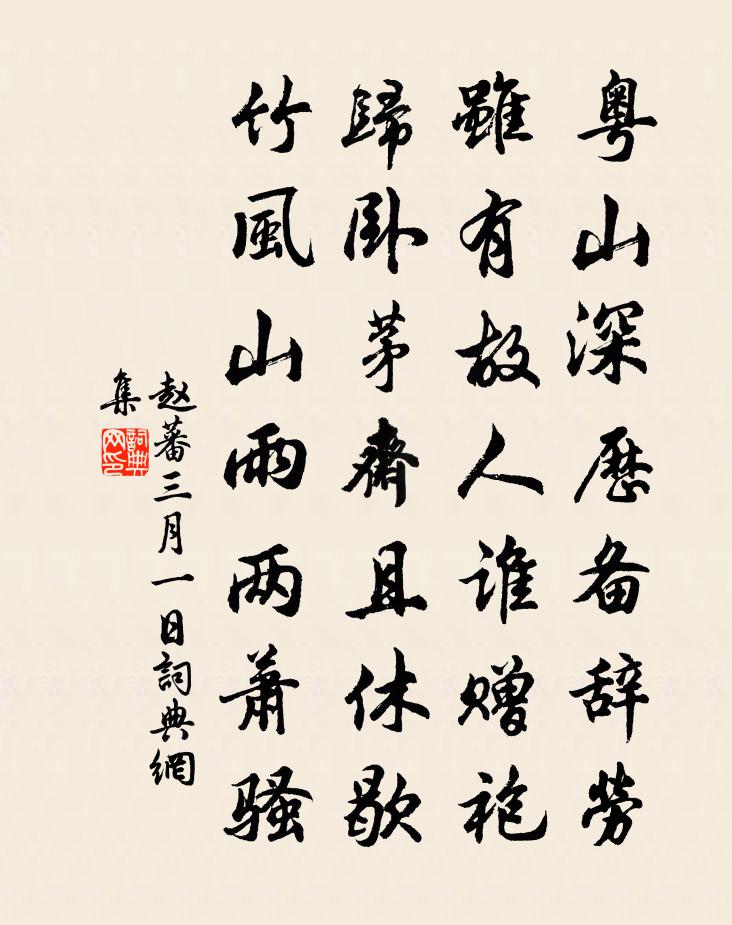 粤山深歷备辞勞
雖有故人谁赠袍
歸卧茅齋且休歇
竹風山雨两蕭骚
赵蕃三月一日詞典網
集
詞典网印